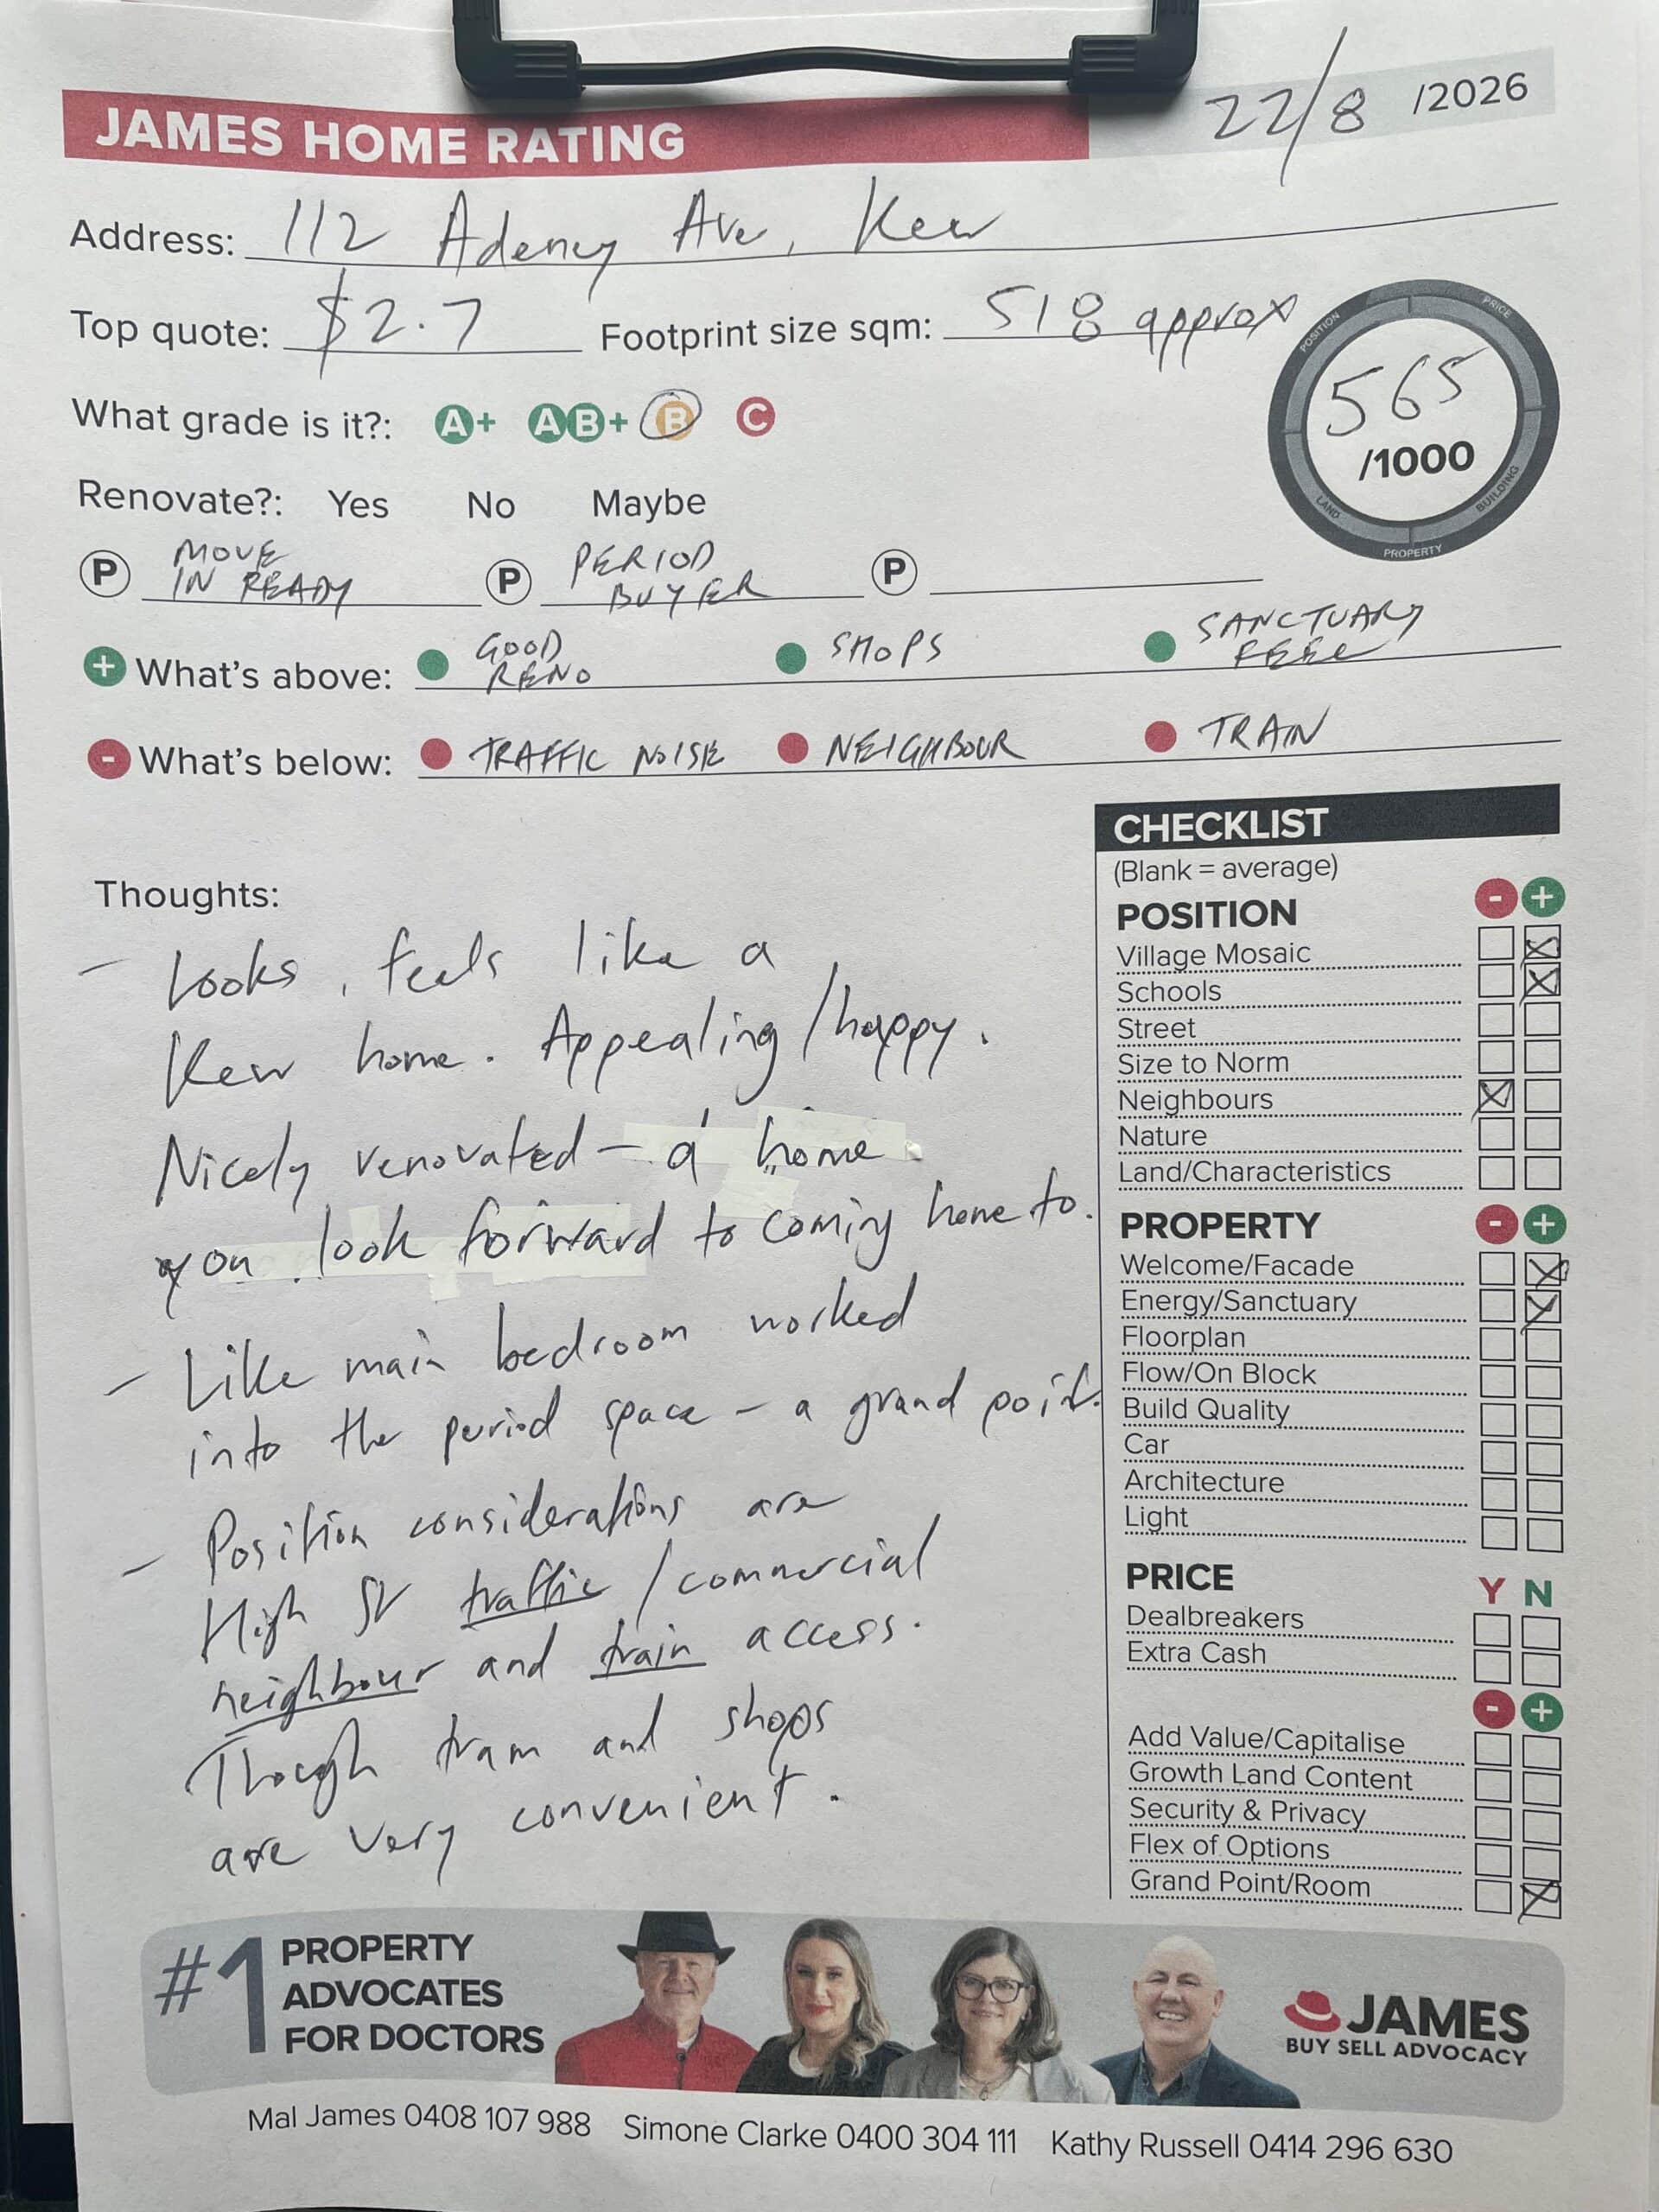 JAMES HOME RATING
22/8 /2026
Address: 112 Adeney Ave, Kew
Top quote: $2.7 Footprint size sqm: 518 approx
POSITION PRICE LAND BUILDING PROPERTY
565
/1000
What grade is it?: A+ AB+ B C
Renovate?: Yes No Maybe
P MOVE IN READY P PERIOD BUYER P
+ What's above: GOOD RENO SHOPS SANCTUARY FEEL
- What's below: TRAFFIC NOISE NEIGHBOUR TRAIN
Thoughts:
- Looks, feels like a
Kew home. Appealing/happy.
Nicely renovated - a home
you look forward to coming home to.
- Like main bedroom worked
into the period space - a grand point.
- Position considerations are
High St traffic/commercial
neighbour and train access.
Though tram and shops
are very convenient.
CHECKLIST
(Blank = average)
POSITION - +
Village Mosaic
Schools
Street
Size to Norm
Neighbours
Nature
Land/Characteristics
PROPERTY - +
Welcome/Facade
Energy/Sanctuary
Floorplan
Flow/On Block
Build Quality
Car
Architecture
Light
PRICE Y N
Dealbreakers
Extra Cash
- +
Add Value/Capitalise
Growth Land Content
Security & Privacy
Flex of Options
Grand Point/Room
#1 PROPERTY
ADVOCATES
FOR DOCTORS
JAMES
BUY SELL ADVOCACY
Mal James 0408 107 988 Simone Clarke 0400 304 111 Kathy Russell 0414 296 630